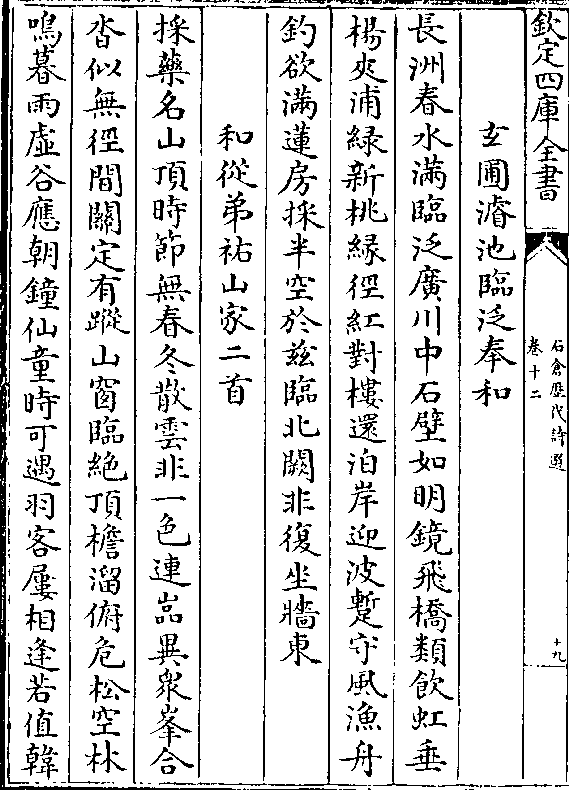 欽定四庫全書
石倉歴代詩選
卷十二
十九
玄圃濬池臨泛奉和
長洲春水滿臨泛廣川中石壁如明鏡飛橋類飲虹垂
楊夾浦緑新桃縁徑紅對樓還泊岸迎波蹔守風漁舟
釣欲滿蓮房採半空於兹臨北闕非復坐牆東
和從弟祐山家二首
採藥名山頂時節無春冬散雲非一色連嵓異衆峯合
沓似無徑間關定有蹤山窗臨絶頂檐溜俯危松空林
鳴暮雨虚谷應朝鐘仙童時可遇羽客屢相逢若值韓